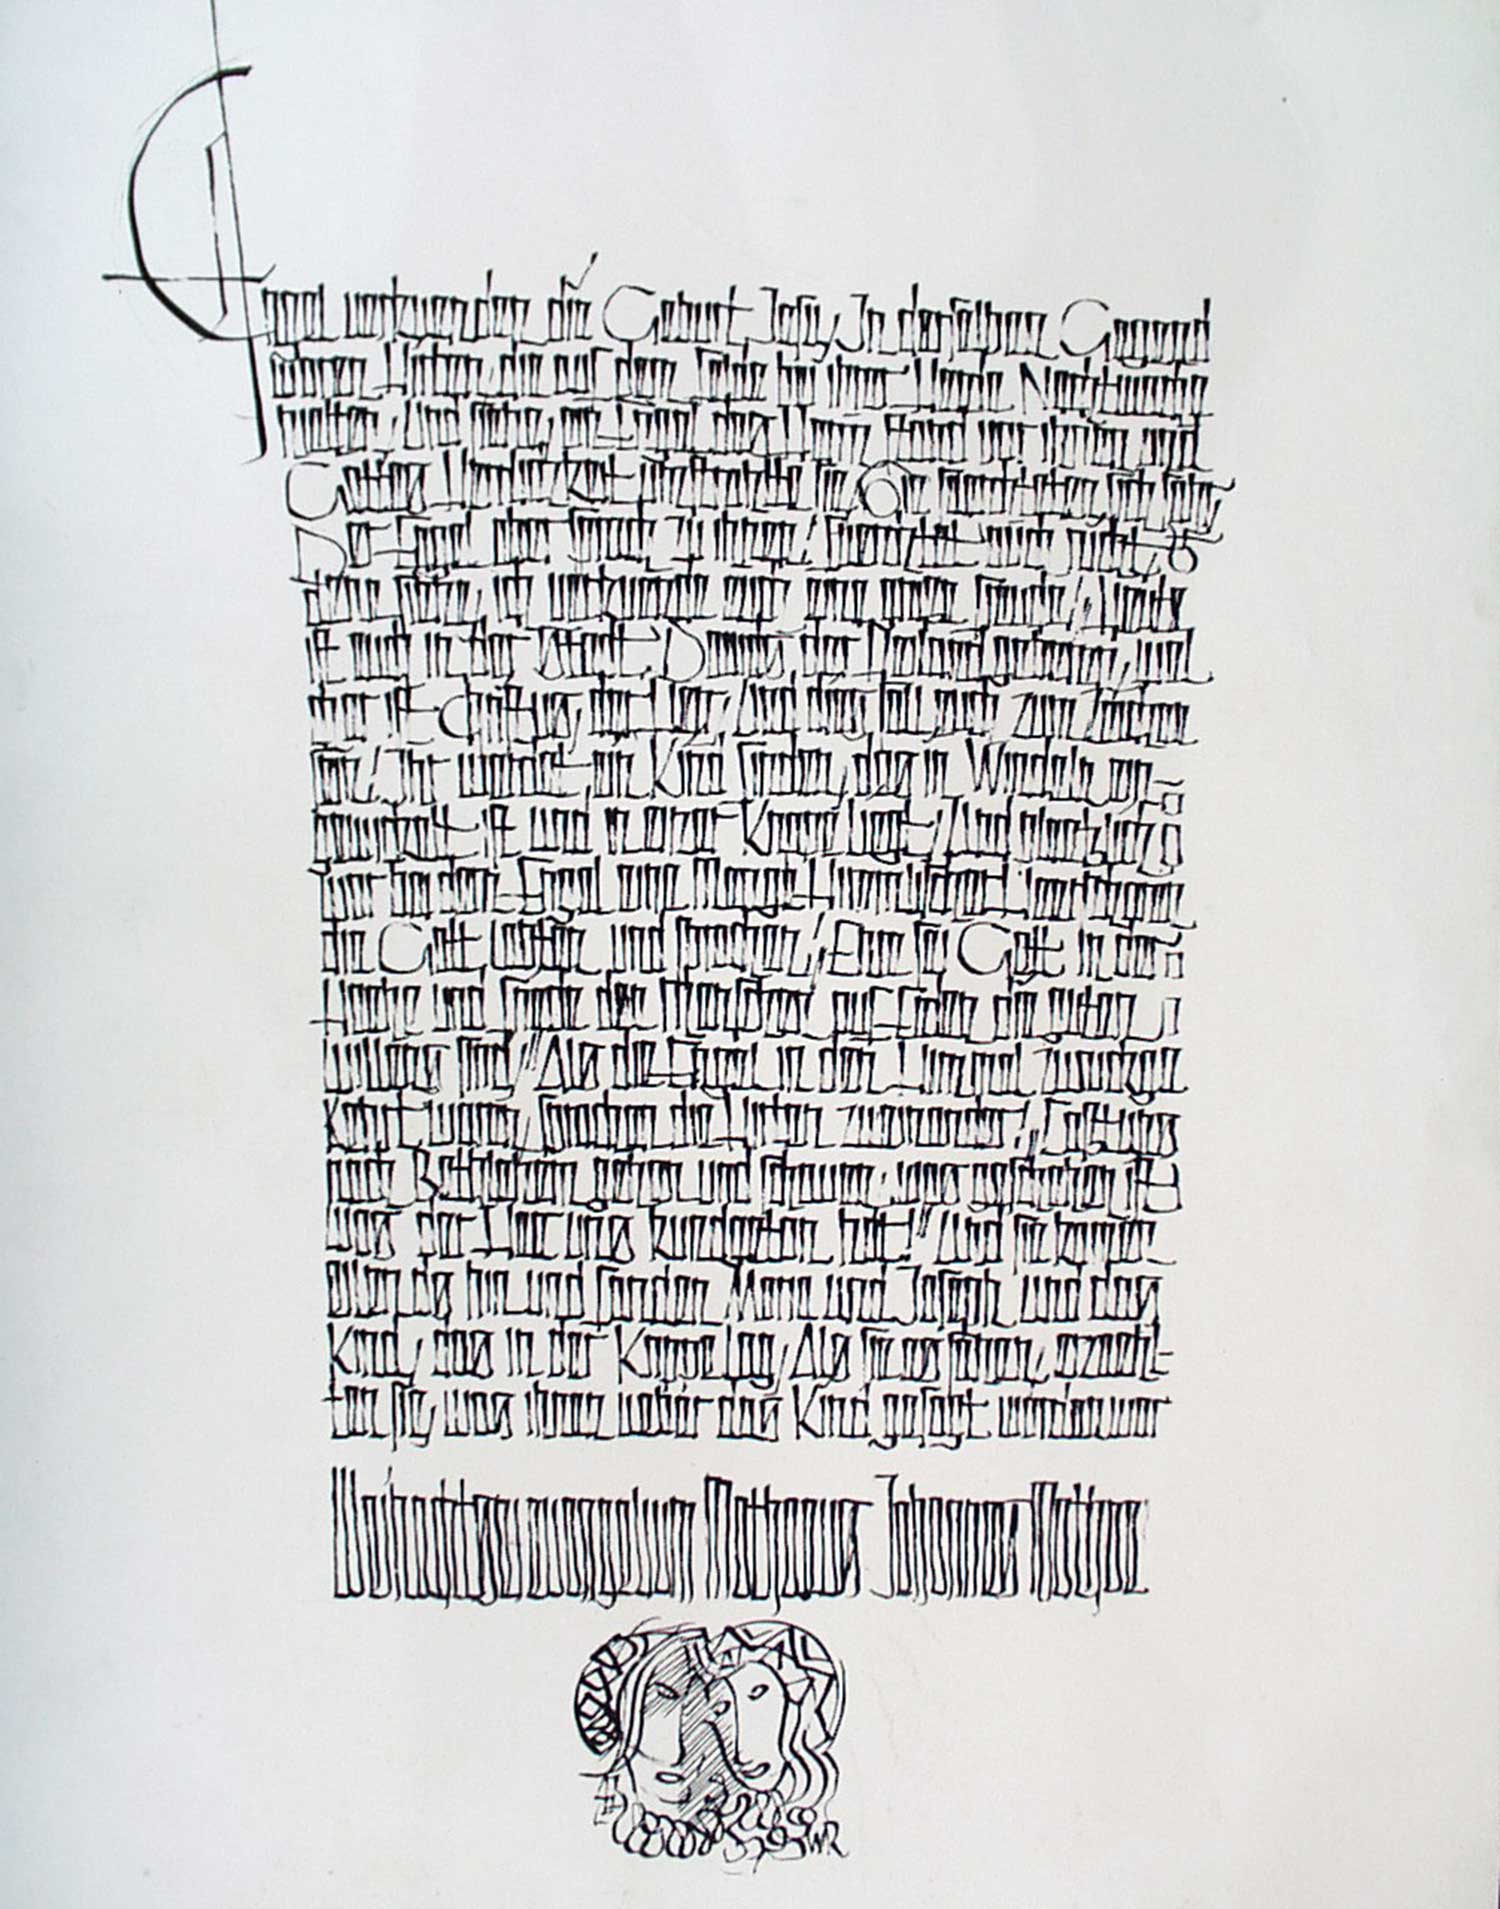 Engel verkuenden die Geburt Jesu, In derselben Gegend
waren Hirten, die auf dem Felde bei ihrer Herde Nachtwache
hielten, Und siehe, ein Engel des Herrn stand vor ihnen und
Gottes Herrlichkeit umstrahlte sie, Sie fuerchteten sich sehr,
Der Engel aber sprach zu ihnen, Fuerchtet euch nicht,
denn siehe, ich verkuende euch eine grosse Freude, Heute
ist euch in der Stadt Davids der Heiland geboren, wel
cher ist Christus, der Herr, Und dies soll euch zum Zeichen
sein, Ihr werdet ein Kind finden, das in Windeln ein-
gewickelt ist und in einer Krippe liegt, Und ploetzlich
war bei dem Engel eine Menge himmlischer Heerscharen
die Gott lobten und sprachen, Ehre sei Gott in der
Hoehe und Friede den Menschen auf Erden die guten
Willens sind, Als die Engel in den Himmel zurueckge
kehrt waren, sprachen die Hirten zueinander, Laßt uns
nach Bethlehem gehen und schauen, was geschehen ist
was der Herr uns kundgetan hat!" Und sie kamen
eilends hin und fanden Maria und Joseph und das
Kind, das in der Krippe lag, Als sie es sahen, erzaehl-
ten sie, was ihnen ueber das Kind gesagt worden war
Weihnachtsevangelium Mathaeus Johannes
WR